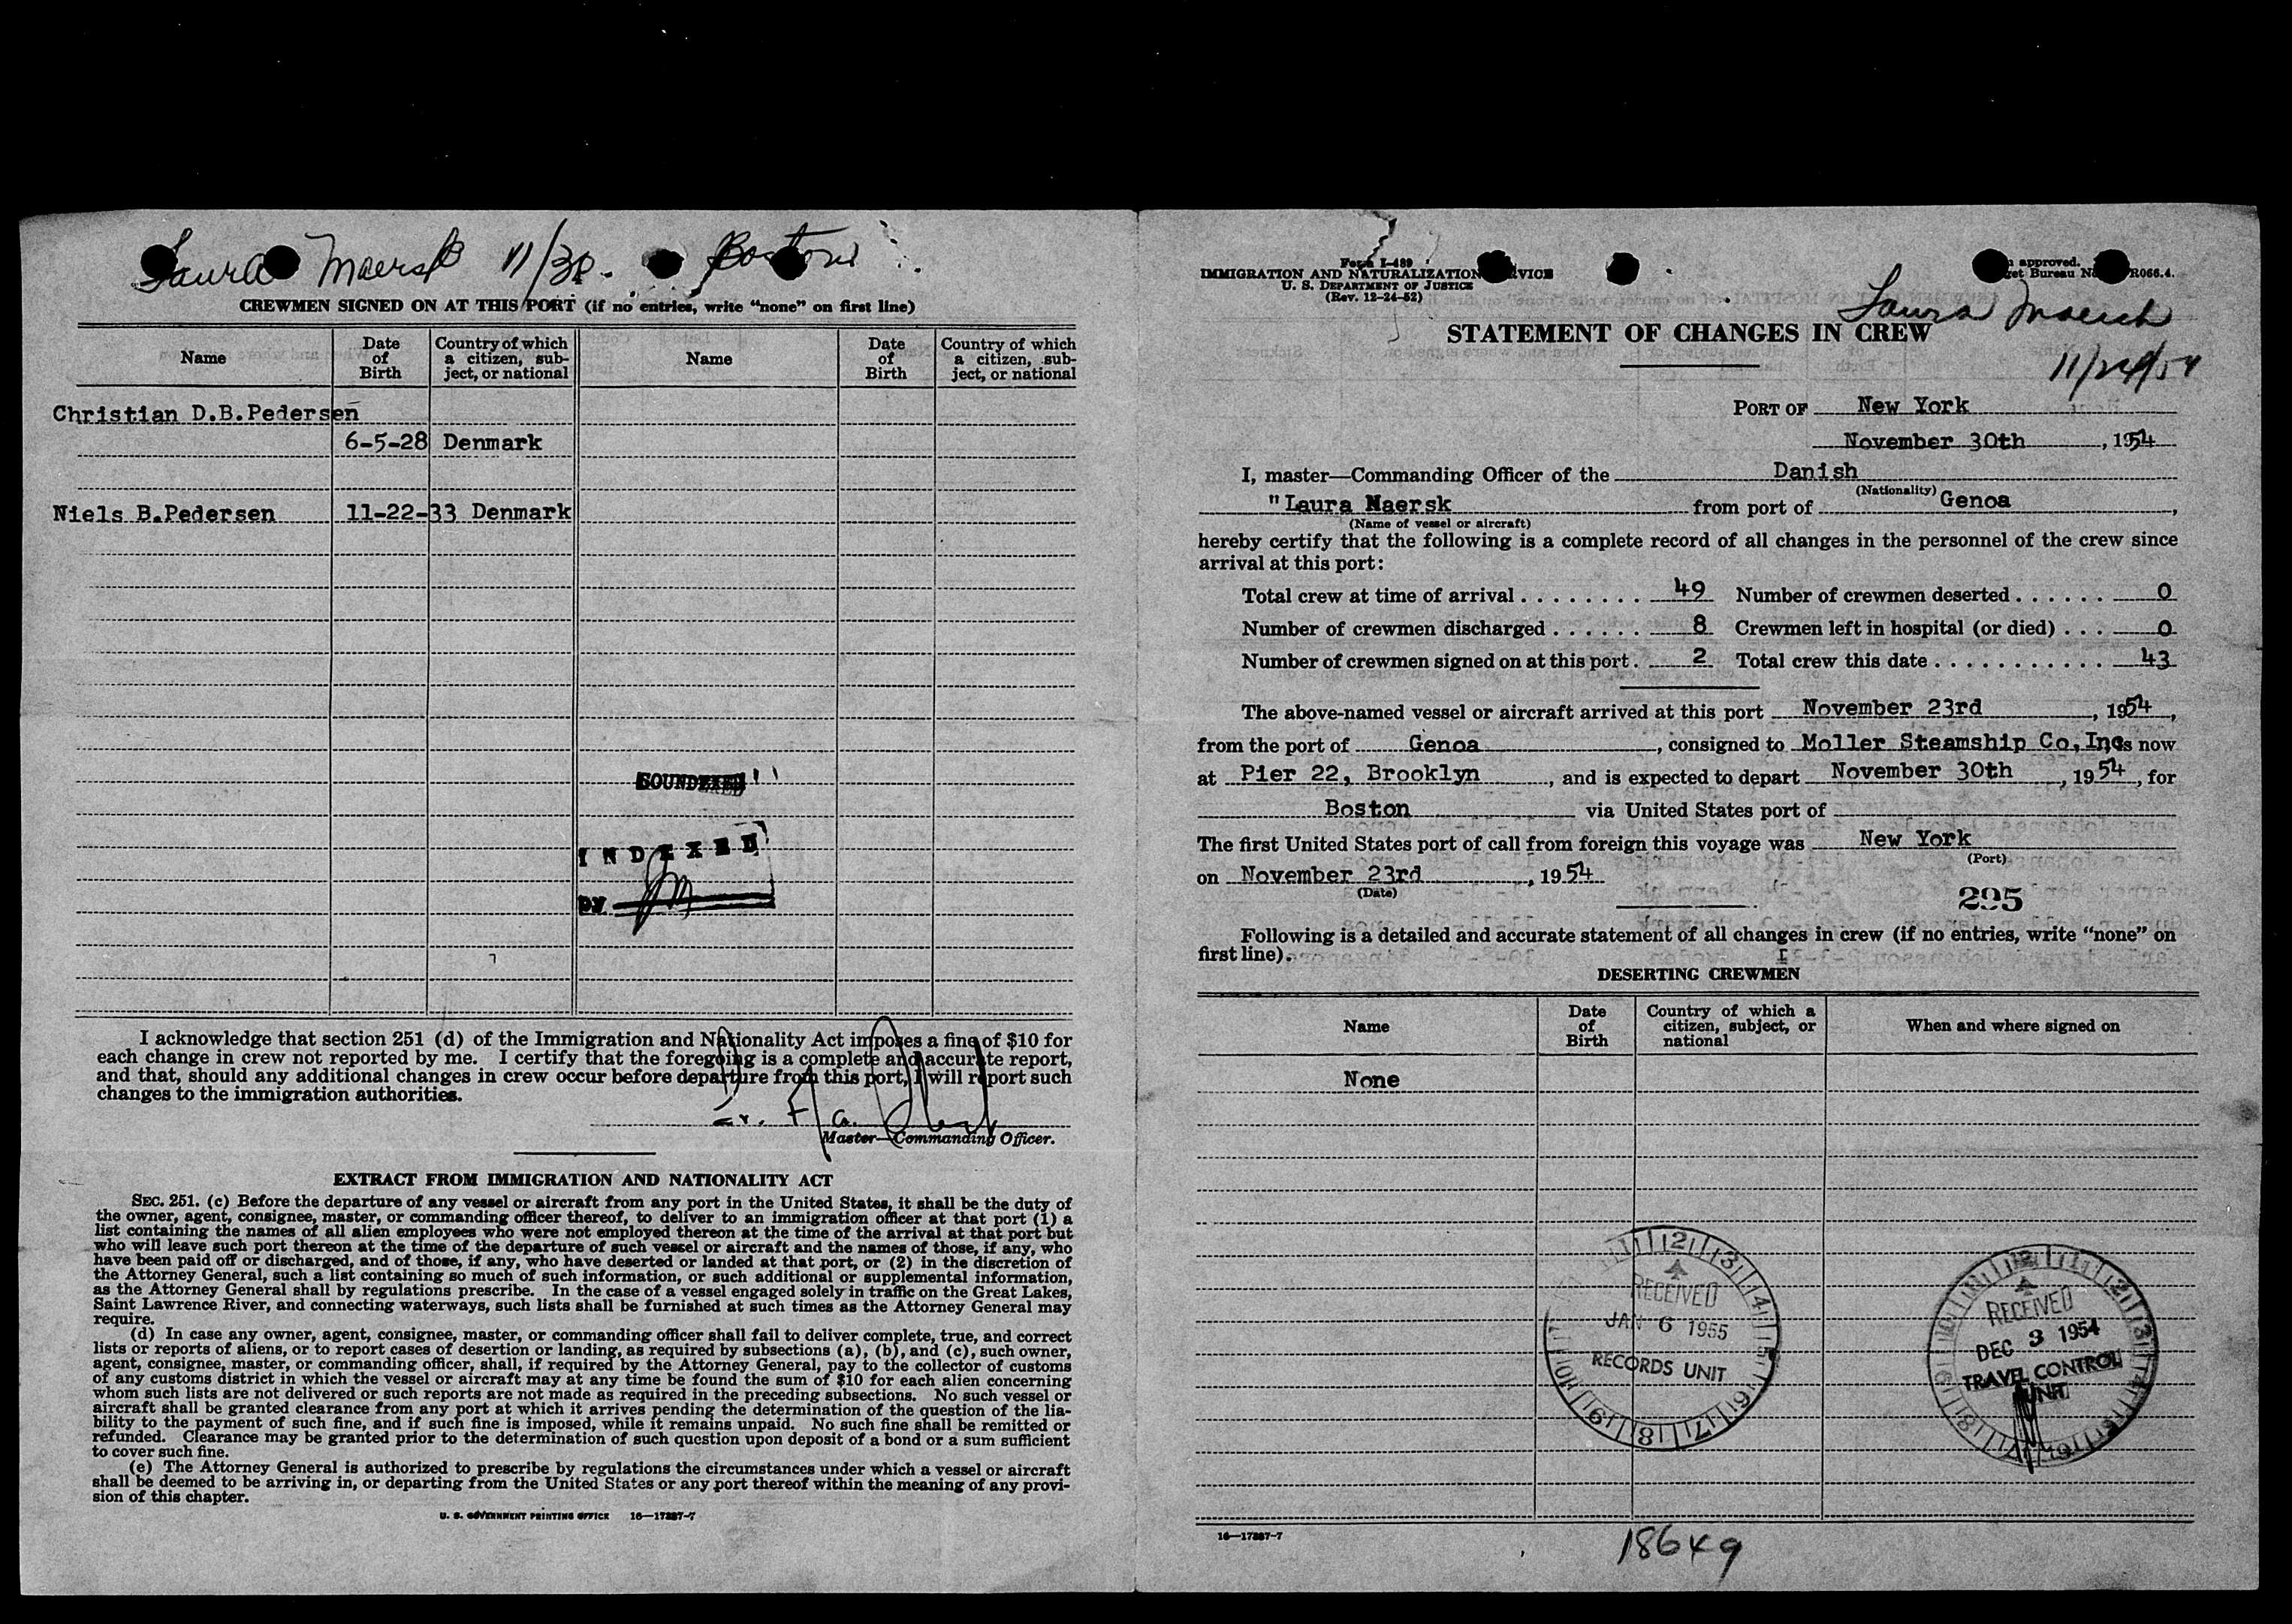 Laura Maersk 11/30. Boston
CREWMEN SIGNED ON AT THIS PORT (if no entries, write “none” on first line)
Name Date of Birth Country of which a citizen, sub-ject, or national Name Date of Birth Country of which a citizen, sub-ject, or national
Christian D.B.Pedersen
6-5-28 Denmark
Niels B.Pedersen 11-22-33 Denmark
SOUNDEXED
INDEXED
by
I acknowledge that section 251 (d) of the Immigration and Nationality Act imposes a fine of $10 for
each change in crew not reported by me. I certify that the foregoing is a complete and accurate report,
and that, should any additional changes in crew occur before departure from this port, I will report such
changes to the immigration authorities.
Master—Commanding Officer.
EXTRACT FROM IMMIGRATION AND NATIONALITY ACT
SEC. 251. (c) Before the departure of any vessel or aircraft from any port in the United States, it shall be the duty of
the owner, agent, consignee, master, or commanding officer thereof, to deliver to an immigration officer at that port (1) a
list containing the names of all alien employees who were not employed thereon at the time of the arrival at that port but
who will leave such port thereon at the time of the departure of such vessel or aircraft and the names of those, if any, who
have been paid off or discharged, and of those, if any, who have deserted or landed at that port, or (2) in the discretion of
the Attorney General, such a list containing so much of such information, or such additional or supplemental information,
as the Attorney General shall by regulations prescribe. In the case of a vessel engaged solely in traffic on the Great Lakes,
Saint Lawrence River, and connecting waterways, such lists shall be furnished at such times as the Attorney General may
require.
(d) In case any owner, agent, consignee, master, or commanding officer shall fail to deliver complete, true, and correct
lists or reports of aliens, or to report cases of desertion or landing, as required by subsections (a), (b), and (c), such owner,
agent, consignee, master, or commanding officer, shall, if required by the Attorney General, pay to the collector of customs
of any customs district in which the vessel or aircraft may at any time be found the sum of $10 for each alien concerning
whom such lists are not delivered or such reports are not made as required in the preceding subsections. No such vessel or
aircraft shall be granted clearance from any port at which it arrives pending the determination of the question of the lia-
bility to the payment of such fine, and if such fine is imposed, while it remains unpaid. No such fine shall be remitted or
refunded. Clearance may be granted prior to the determination of such question upon deposit of a bond or a sum sufficient
to cover such fine.
(e) The Attorney General is authorized to prescribe by regulations the circumstances under which a vessel or aircraft
shall be deemed to be arriving in, or departing from the United States or any port thereof within the meaning of any provi-
sion of this chapter.
U. S. GOVERNMENT PRINTING OFFICE 16—17387-7
Form I-489
IMMIGRATION AND NATURALIZATION
U. S. DEPARTMENT OF JUSTICE
(Rev. 12-24-52)
approved.
Bureau No. R066.4.
Laura Maersk
STATEMENT OF CHANGES IN CREW
11/24/54
PORT OF New York
November 30th, 1954
I, master—Commanding Officer of the Danish
(Nationality)
"Laura Maersk from port of Genoa,
(Name of vessel or aircraft)
hereby certify that the following is a complete record of all changes in the personnel of the crew since
arrival at this port:
Total crew at time of arrival . . . . . . . . 49 Number of crewmen deserted . . . . . . 0
Number of crewmen discharged . . . . . . 8 Crewmen left in hospital (or died) . . . 0
Number of crewmen signed on at this port . 2 Total crew this date . . . . . . . . . . . 43
The above-named vessel or aircraft arrived at this port November 23rd, 1954,
from the port of Genoa, consigned to Moller Steamship Co,Inc, is now
at Pier 22, Brooklyn, and is expected to depart November 30th, 1954, for
Boston via United States port of
The first United States port of call from foreign this voyage was New York
(Port)
on November 23rd, 1954
(Date)
295
Following is a detailed and accurate statement of all changes in crew (if no entries, write “none” on
first line).
DESERTING CREWMEN
Name Date of Birth Country of which a citizen, subject, or national When and where signed on
None
RECEIVED
JAN 6 1955
RECORDS UNIT
RECEIVED
DEC 3 1954
TRAVEL CONTROL
UNIT
16—17387-7
18649